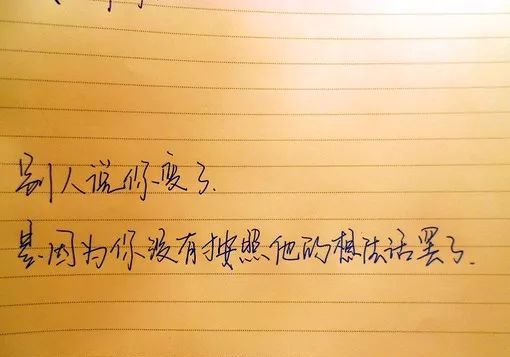 别人说你变了.
是因为你没有按照他的想法活罢了.